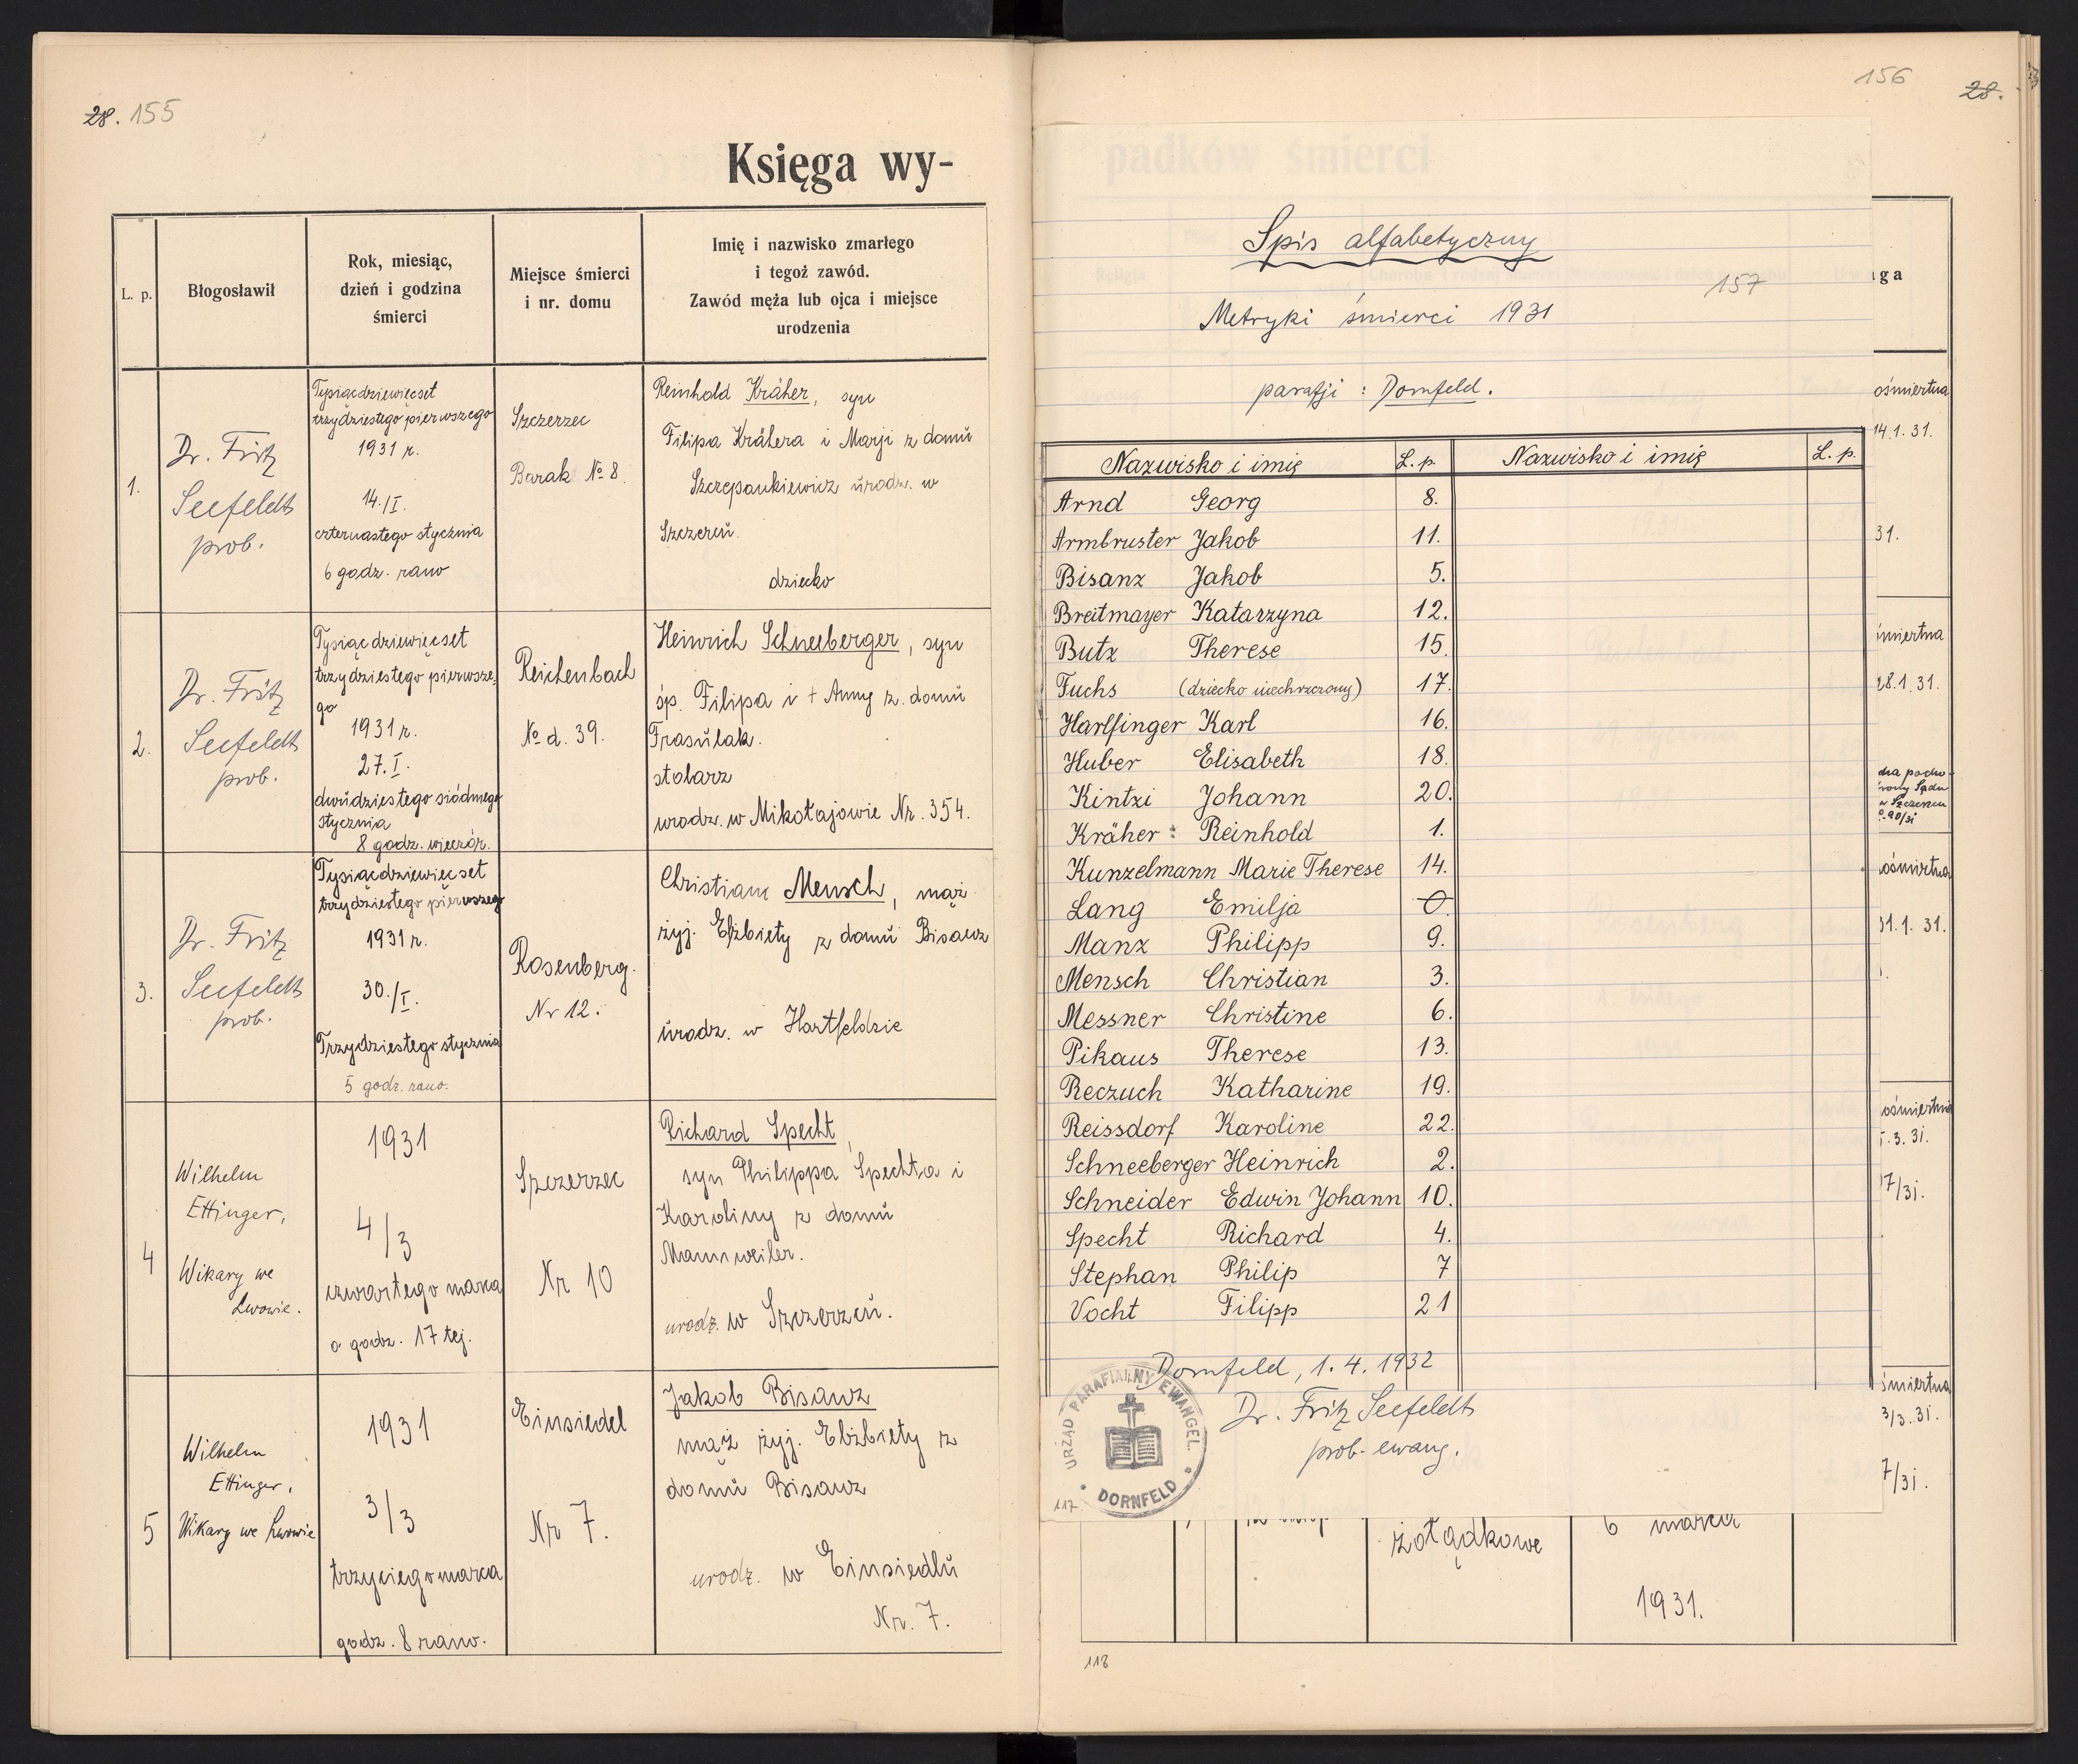 28. 155
Księga wy-
L. p.
Błogosławił
Rok, miesiąc,
dzień i godzina
śmierci
Miejsce śmierci
i nr. domu
Imię i nazwisko zmarłego
i tegoż zawód.
Zawód męża lub ojca i miejsce
urodzenia
1.
Dr. Fritz
Seefeldt
prob.
Tysiącdziewięćset
trzydziestego pierwszego
1931 r.
14./I.
czternastego stycznia
6 godz. rano
Szczerzec
Barak № 8.
Reinhold Kräher, syn
Filipa Krähera i Marji z domu
Szczepankiewicz urodz. w
Szczercu.
dziecko
2.
Dr. Fritz
Seefeldt
prob.
Tysiąc dziewięćset
trzydziestego pierwsze-
go
1931 r.
27. I.
dwudziestego siódmego
stycznia
8 godz. wieczór.
Reichenbach
№ d. 39.
Heinrich Schneeberger, syn
śp. Filipa i + Anny z. domu
Frasulak.
stolarz
urodz. w Mikołajowie Nr. 354.
3.
Dr. Fritz
Seefeldt
prob.
Tysiącdziewięćset
trzydziestego pierwszego
1931 r.
30./I.
Trzydziestego stycznia
5 godz. rano.
Rosenberg.
Nr 12.
Christian Mensch, mąż
żyj. Elżbiety z domu Bisanz
urodz. w Hartfeldzie
4
Wilhelm
Ettinger,
Wikary we
Lwowie.
1931
4/3
czwartego marca
o godz. 17 tej.
Szczerzec
Nr 10
Richard Specht,
syn Philippa Spechta i
Karoliny z domu
Mannweiler.
urodz. w Szczerzcu.
5
Wilhelm
Ettinger,
Wikary we Lwowie
1931
3/3
trzeciego marca
godz. 8 rano.
Einsiedel
Nr 7.
Jakob Bisanz
mąż żyj. Elżbiety z
domu Bisanz
urodz. w Einsiedlu
Nr. 7.
156
28.
padków śmierci
Spis alfabetyczny
157
Metryki śmierci 1931
parafji : Dornfeld.
Nazwisko i imię L. p. Nazwisko i imię L. p.
Arnd Georg 8.
Armbruster Jakob 11.
Bisanz Jakob 5.
Breitmayer Katarzyna 12.
Butz Therese 15.
Fuchs (dziecko niechrzczony) 17.
Harlfinger Karl 16.
Huber Elisabeth 18.
Kintzi Johann 20.
Kräher : Reinhold 1.
Kunzelmann Marie Therese 14.
Lang Emilja 0.
Manz Philipp 9.
Mensch Christian 3.
Messner Christine 6.
Pikaus Therese 13.
Reczuch Katharine 19.
Reissdorf Karoline 22.
Schneeberger Heinrich 2.
Schneider Edwin Johann 10.
Specht Richard 4.
Stephan Philip 7
Vocht Filipp 21
Dornfeld, 1. 4. 1932
Dr. Fritz Seefeldt
prob. ewang.
URZĄD PARAFIALNY EWANGEL.
DORNFELD
117
żołądkowe
6 marca
1931.
118
aga
ośmiertna
14.1.31.
31.
śmiertna
28.1.31.
ośmiertna
31.1.31.
ośmiertna
3.31.
17/31.
śmiertna
3/3.31.
7/31.